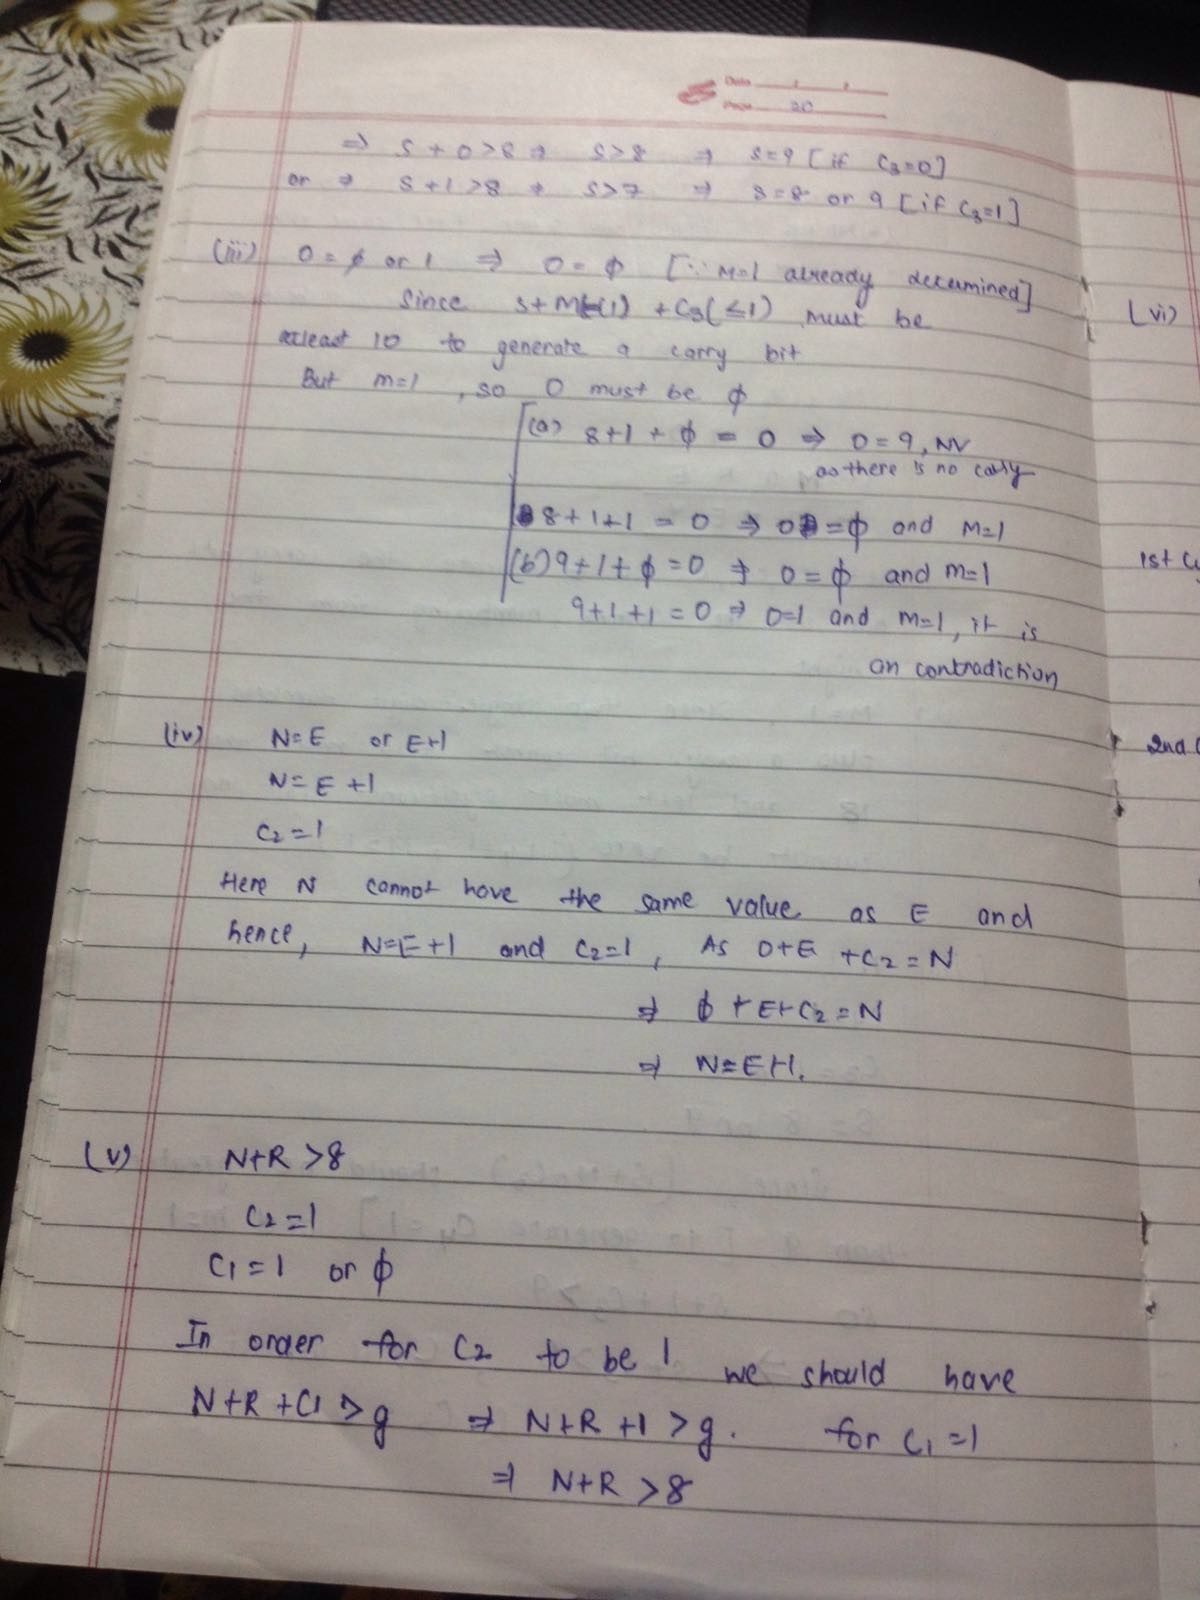 Date
Page 20
⇒ S + 0 > 8 ⇒ S > 8 ⇒ S = 9 [if C3=0]
or ⇒ S + 1 > 8 ⇒ S > 7 ⇒ S = 8 or 9 [if C3=1]
(iii) O = ϕ or 1 ⇒ O = ϕ [∵ M=1 already determined]
Since S+M(1) + C3(≤1) must be
atleast 10 to generate a carry bit
But m=1, so O must be ϕ
(a) 8+1+ϕ = O ⇒ O = 9, NV
as there is no carry
8+1+1 = O ⇒ O = ϕ and M=1
(b) 9+1+ϕ = O ⇒ O = ϕ and m=1
9+1+1 = O ⇒ O=1 and m=1, it is
an contradiction
(iv) N=E or E+1
N=E+1
C2=1
Here N cannot have the same value as E and
hence, N=E+1 and C2=1, As O+E+C2=N
⇒ ϕ+E+C2=N
⇒ N=E+1.
(v) N+R >8
C2=1
C1=1 or ϕ
In order for C2 to be 1 we should have
N+R+C1 > 9 ⇒ N+R+1 > 9. for C1=1
⇒ N+R >8
(vi)
1st
2nd